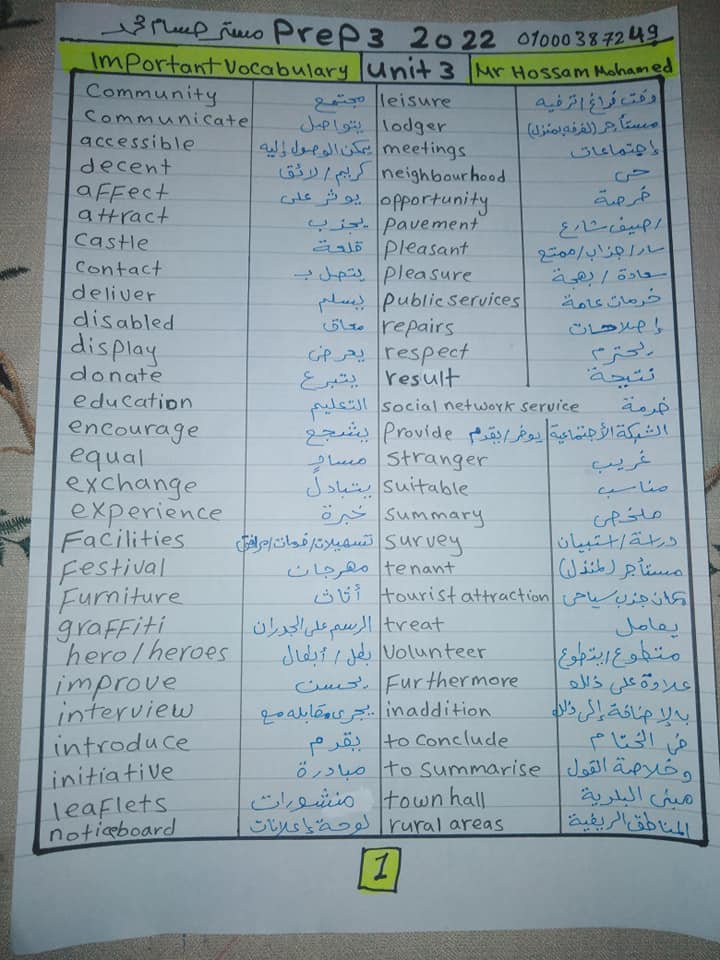 مستر حسام محمد Prep3 2022 01000387249
Important Vocabulary Unit 3 Mr Hossam Mohamed
Community مجتمع leisure وقت فراغ / ترفيه
Communicate يتواصل lodger مستأجر (لغرفه بمنزل)
accessible يمكن الوصول إليه meetings إجتماعات
decent كريم / لائق neighbourhood حى
affect يوثر على opportunity فرصة
attract يجذب Pavement رصيف شارع
Castle قلعة Pleasant سار / جذاب / ممتع
Contact يتصل ب Pleasure سعادة / بهجة
deliver يسلم Public services خدمات عامة
disabled معاق repairs إصلاحات
display يعرض respect يحترم
donate يتبرع result نتيجة
education التعليم social network service خدمة
encourage يشجع Provide يوفر / يقدم الشبكة الأجتماعية
equal مساوٍ Stranger غريب
exchange يتبادل Suitable مناسب
experience خبرة Summary ملخص
Facilities تسهيلات / خدمات / مرافق Survey دراسة / استبيان
Festival مهرجان tenant مستأجر (لمنزل)
Furniture أثاث tourist attraction مكان جذب سياحى
graffiti الرسم على الجدران treat يعامل
hero/heroes بطل / أبطال Volunteer متطوع / يتطوع
improve يحسن Furthermore علاوة على ذلك
interview يجرى مقابله مع inaddition بالإضافة إلى ذلك
introduce يقدم to Conclude فى الختام
initiative مبادرة to Summarise وخلاصة القول
leaflets منشورات town hall مبنى البلدية
noticeboard لوحة إعلانات rural areas المناطق الريفية
1